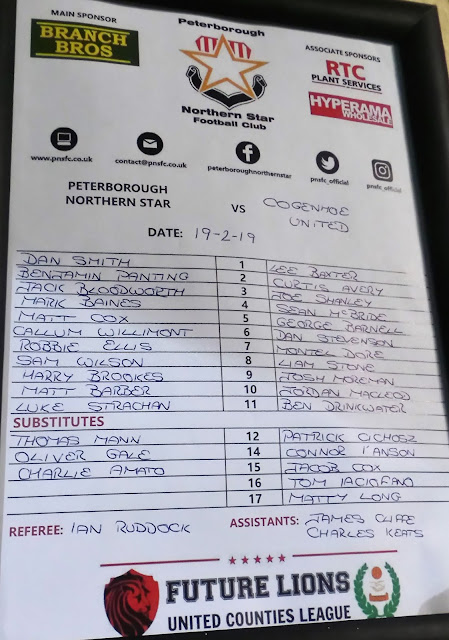 MAIN SPONSOR
BRANCH
BROS
Peterborough
Northern Star
Football Club
ASSOCIATE SPONSORS
RTC
PLANT SERVICES
HYPERAMA
WHOLESALE
www.pnsfc.co.uk
contact@pnsfc.co.uk
peterboroughnorthernstar
pnsfc_official
pnsfc_official
PETERBOROUGH
NORTHERN STAR
VS
COGENHOE
UNITED
DATE: 19-2-19
DAN SMITH 1 LEE BAXTER
BENJAMIN PANTING 2 CURTIS AVERY
JACK BLOODWORTH 3 JOE SHANLEY
MARK BAINES 4 SEAN McBRIDE
MATT COX 5 GEORGE BARNELL
CALLUM WILLIMONT 6 DAN STEVENSON
ROBBIE ELLIS 7 MONTEL DORE
SAM WILSON 8 LIAM STONE
HARRY BROOKES 9 JOSH MOREMAN
MATT BARBER 10 JORDAN MACLEOD
LUKE STRACHAN 11 BEN DRINKWATER
SUBSTITUTES
THOMAS MANN 12 PATRICK CICHOSZ
OLIVER GALE 14 CONNOR I'ANSON
CHARLIE AMATO 15 JACOB COX
16 TOM IACIOFANO
17 MATTY LONG
REFEREE: IAN RUDDOCK
ASSISTANTS: JAMES CLIFFE
CHARLES KEATS
FUTURE LIONS
UNITED COUNTIES LEAGUE